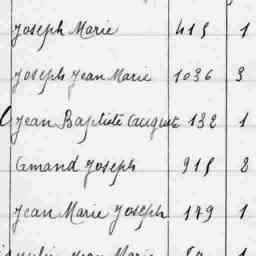 Joseph Marie 415 1
Joseph Jean Marie 1036 3
Jean Baptiste August 132 1
Amand Joseph 915 8
Jean Marie Joseph 179 1
Jean Marie